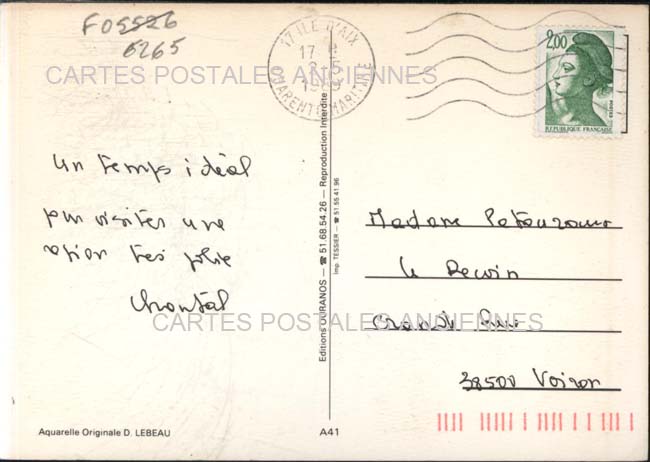 F05526
6265
17 ILE D'AIX
17 H
2-5
19
CHARENTE MARITIME
2,00
REPUBLIQUE FRANÇAISE
CARTES POSTALES ANCIENNES
Un temps idéal
pour visiter une
région très jolie
Chantal
Editions OURANOS — ☎ 51.68.54.26 — Reproduction Interdite
Imp. TESSIER — ☎ 51.55.41.96
Madame
Le Recoin
Grande Rue
38500 Voiron
CARTES POSTALES ANCIENNES
Aquarelle Originale D. LEBEAU
A41